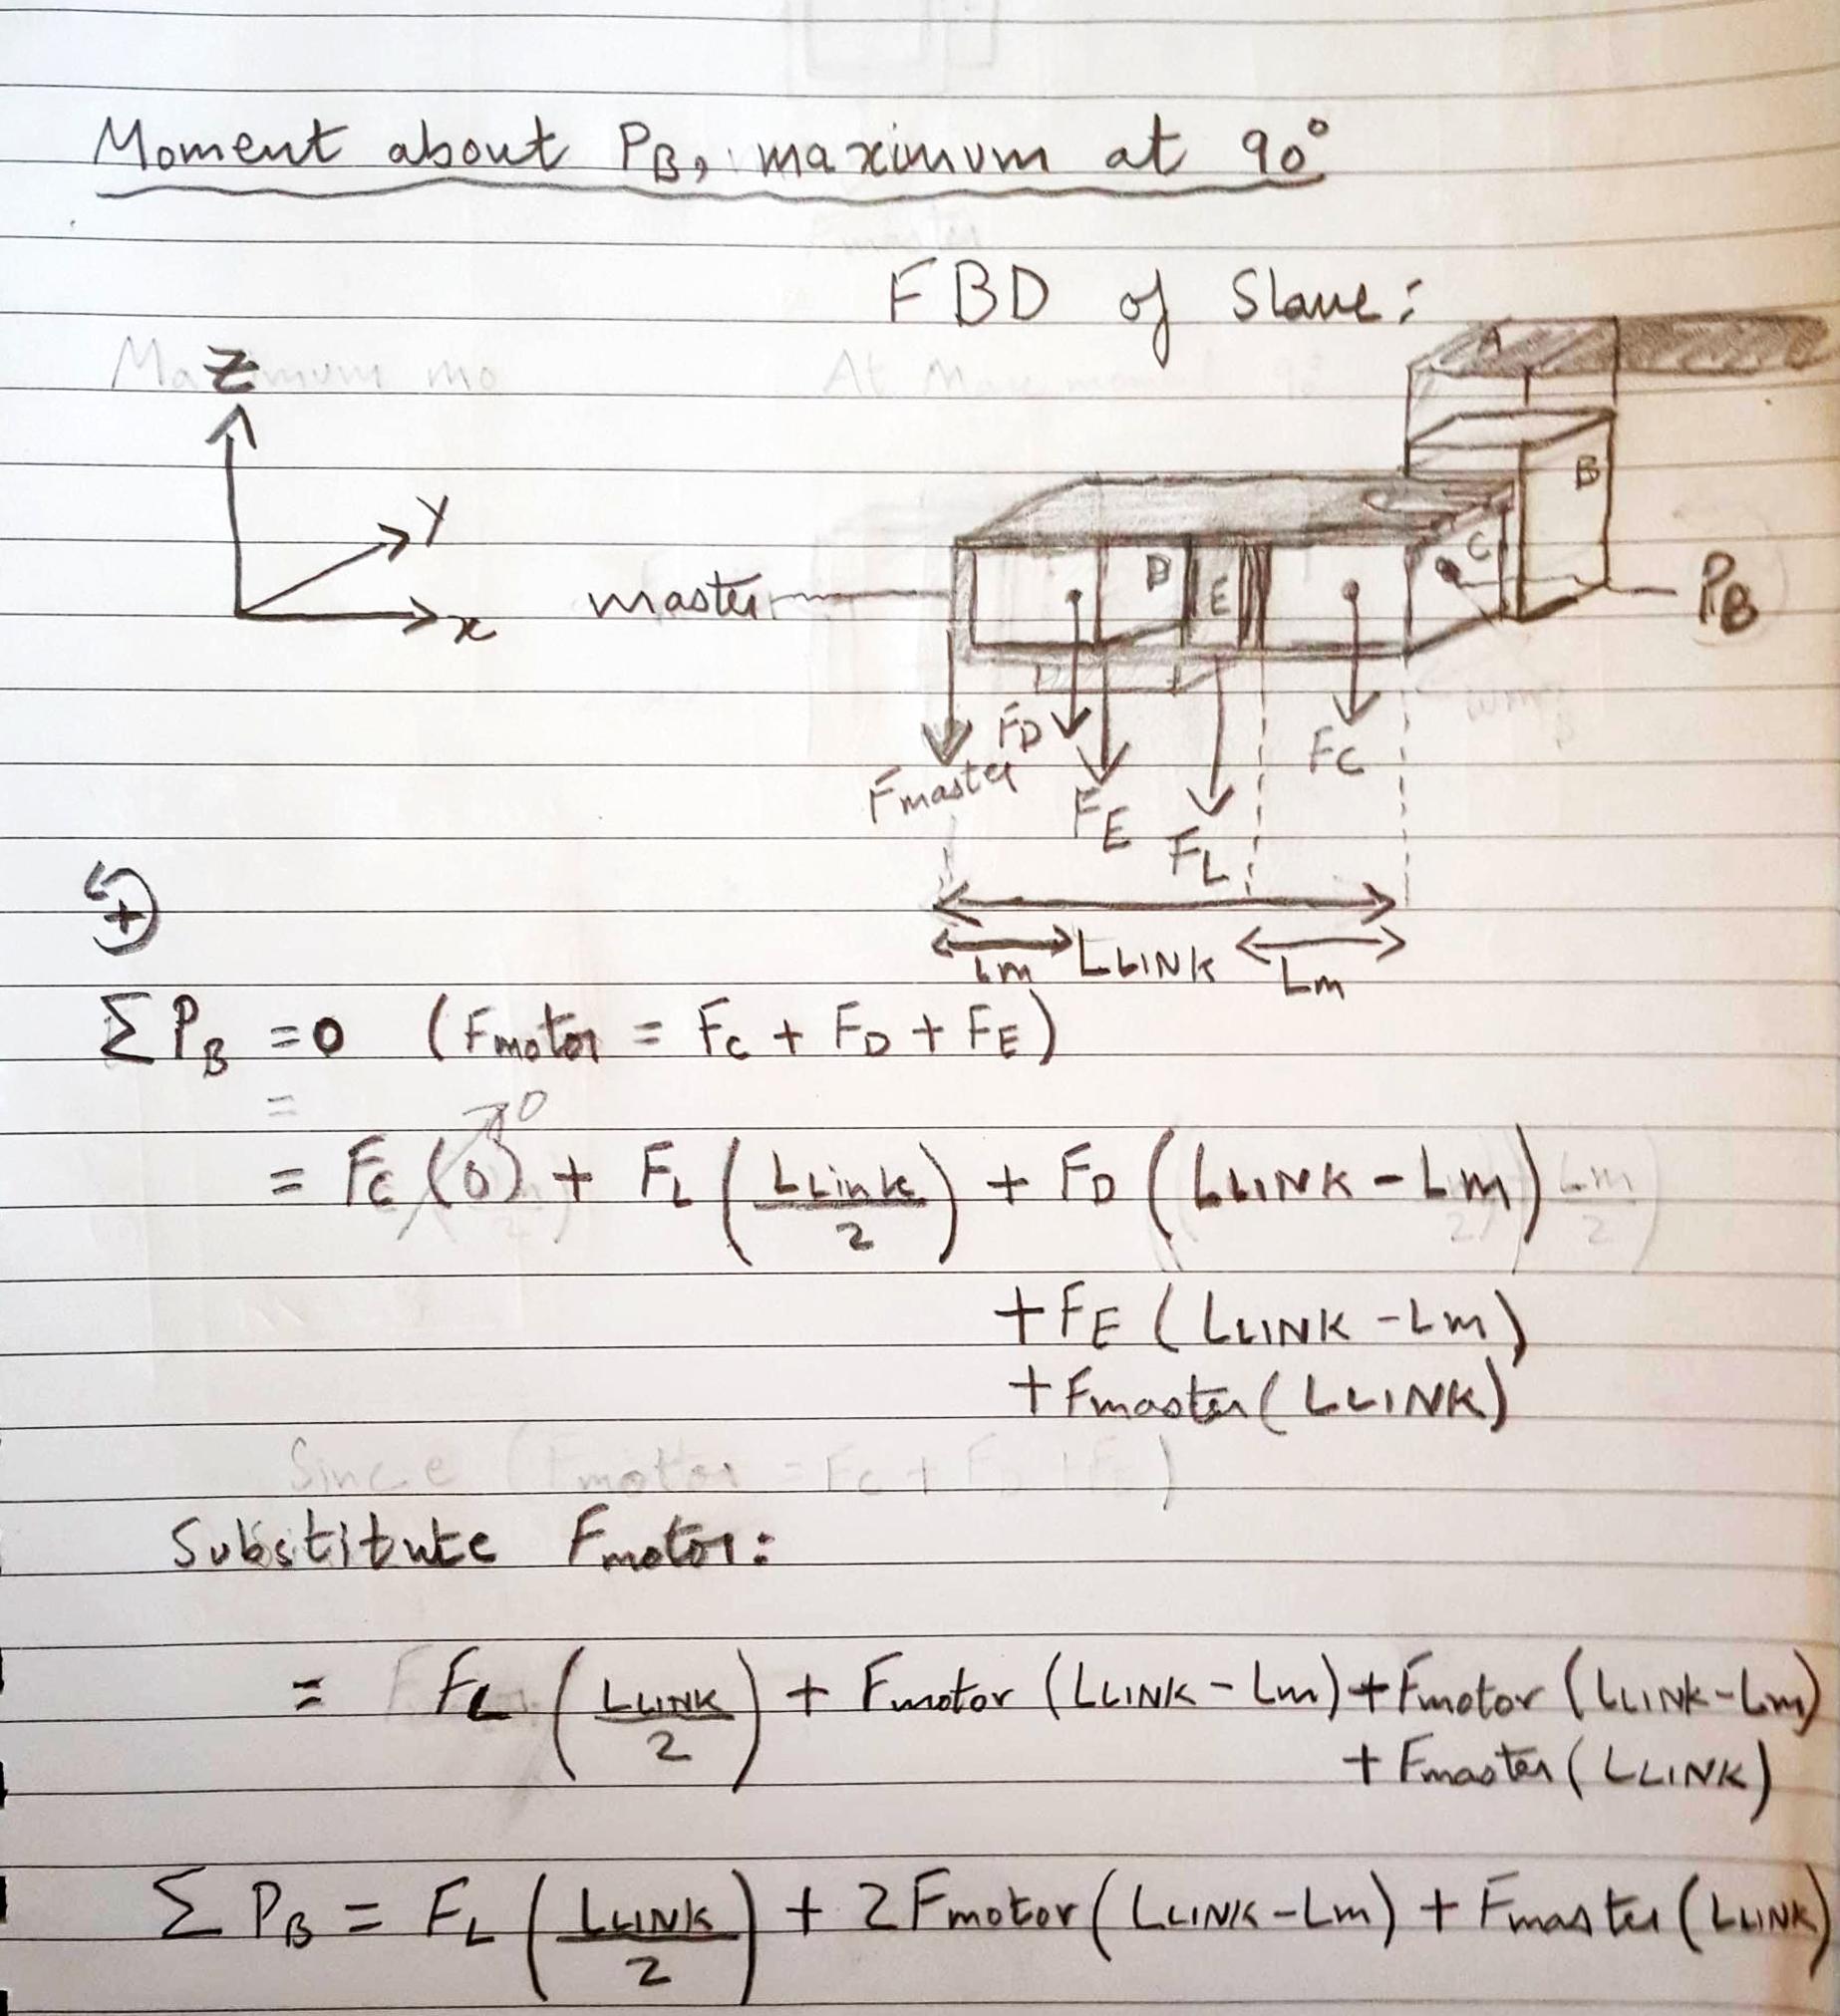 Moment about PB, maximum at 90°
FBD of Slave:
Maximum mo
At Max moment 90°
Z
Y
x
A
B
C
D
E
master
PB
Fmaster
FD
FE
FL
FC
Lm
LLINK
Lm
+
ΣPB = 0 (Fmotor = Fc + FD + FE)
=
= Fc (0)→0 + FL (LLink/2) + FD (LLINK - Lm)
+ FE (LLINK - Lm)
+ Fmaster (LLINK)
Since (Fmotor = Fc + FD + FE)
Substitute Fmotor:
= FL (LLINK/2) + Fmotor (LLINK - Lm) + Fmotor (LLINK - Lm)
+ Fmaster (LLINK)
Σ PB = FL (LLINK/2) + 2Fmotor (LLINK - Lm) + Fmaster (LLINK)